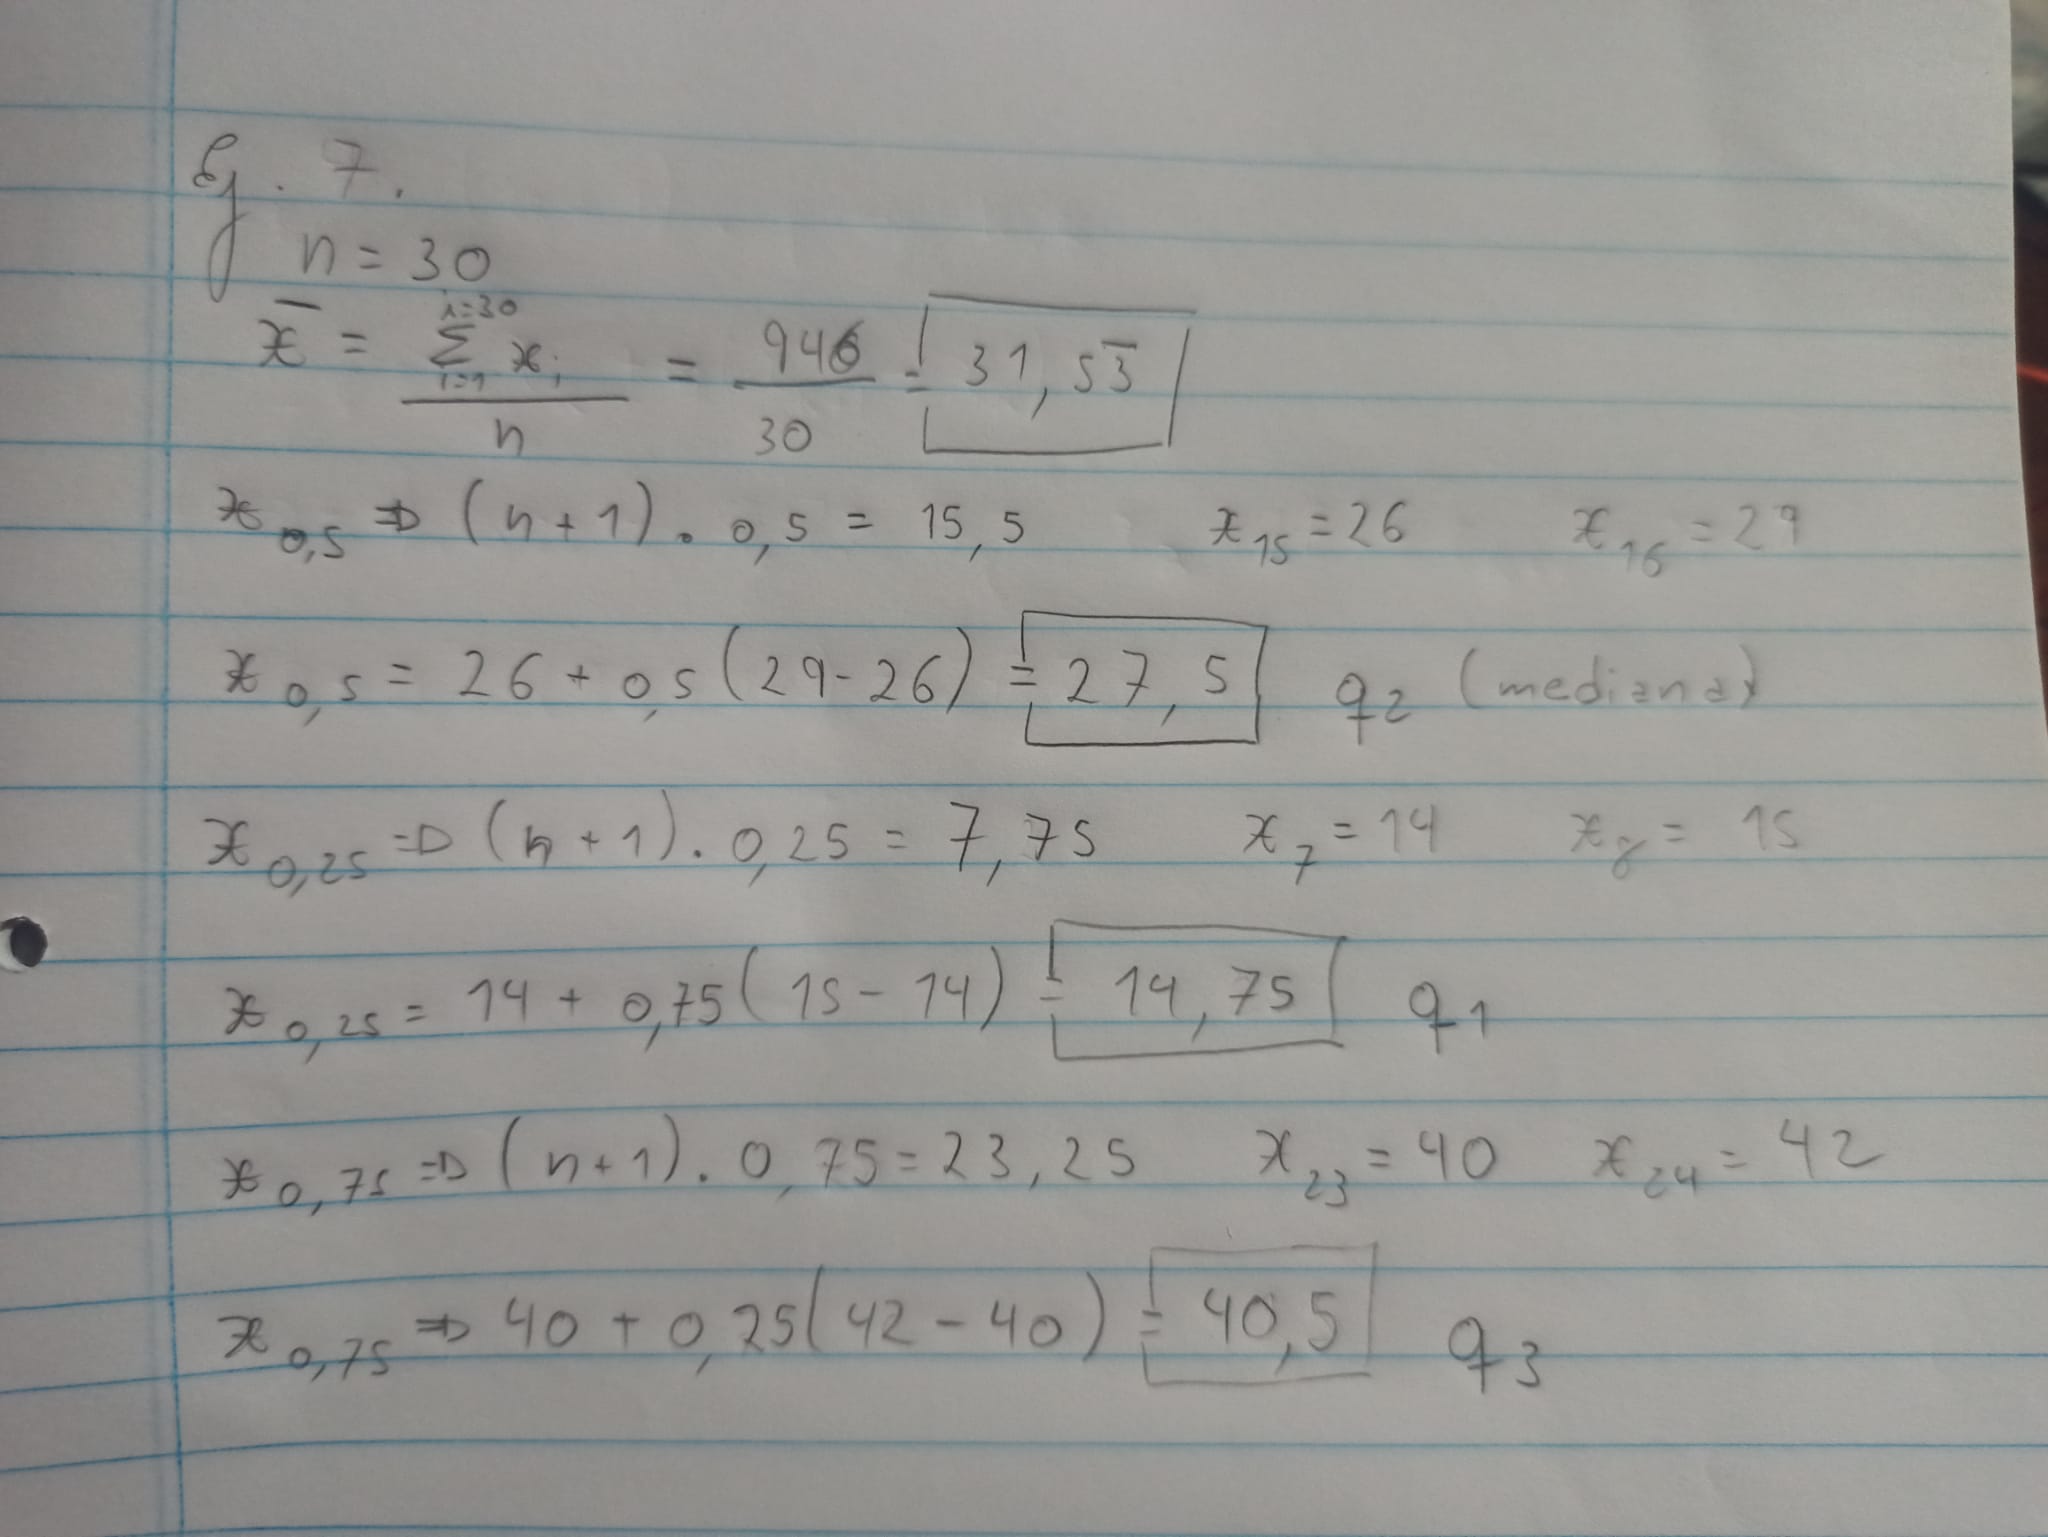 Ej. 7.
n = 30
x̄ = Σ_{i=1}^{i=30} x_i / n = 946 / 30 = 31,53̄
x_{0,5} ⇒ (n+1) . 0,5 = 15,5 x_{15} = 26 x_{16} = 29
x_{0,5} = 26 + 0,5 (29-26) = 27,5 q_2 (mediana)
x_{0,25} ⇒ (n+1) . 0,25 = 7,75 x_7 = 14 x_8 = 15
x_{0,25} = 14 + 0,75 (15-14) = 14,75 q_1
x_{0,75} ⇒ (n+1) . 0,75 = 23,25 x_{23} = 40 x_{24} = 42
x_{0,75} ⇒ 40 + 0,25 (42-40) = 40,5 q_3